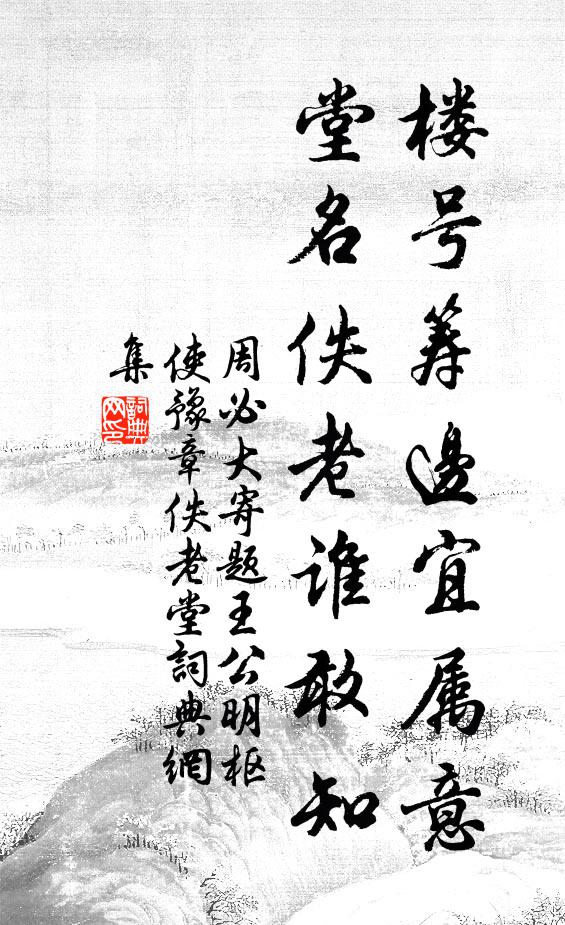 楼号筹邊宜属意
堂名佚老谁敢知
周必大寄题王公明枢
使豫章佚老堂詞典網
集
詞典网印